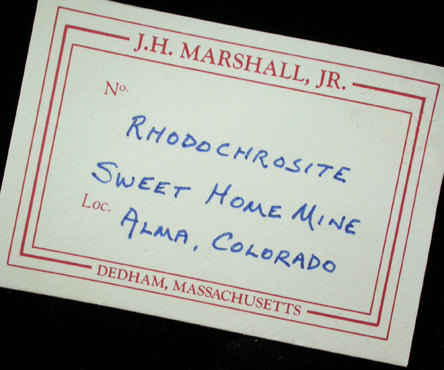 J.H. MARSHALL, JR.
No.
RHODOCHROSITE
SWEET HOME MINE
Loc.
ALMA, COLORADO
DEDHAM, MASSACHUSETTS